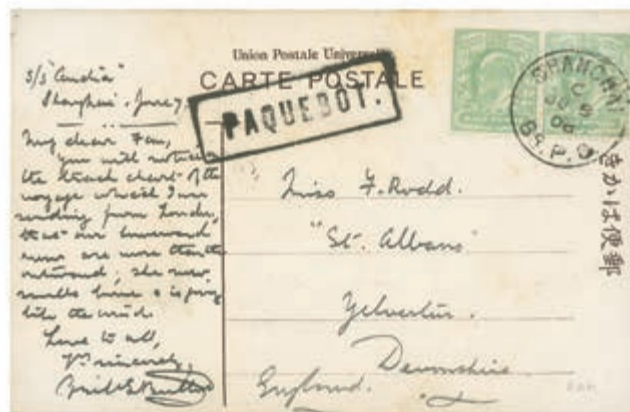 Union Postale Universelle
CARTE POSTALE
PAQUEBOT.
SHANGHAI
C
08
Br. P.O.
郵便はがき
Shanghai. June 7
My dear Fan,
You will notice
the track chart of the
voyage which I am
sending from London,
that our homeward
runs are more than the
outward; she now
smells home & is going
like the wind.
Love to all,
Yrs sincerely,
Miss F. Rodd.
"St. Albans"
Yelverton.
Devonshire
England.